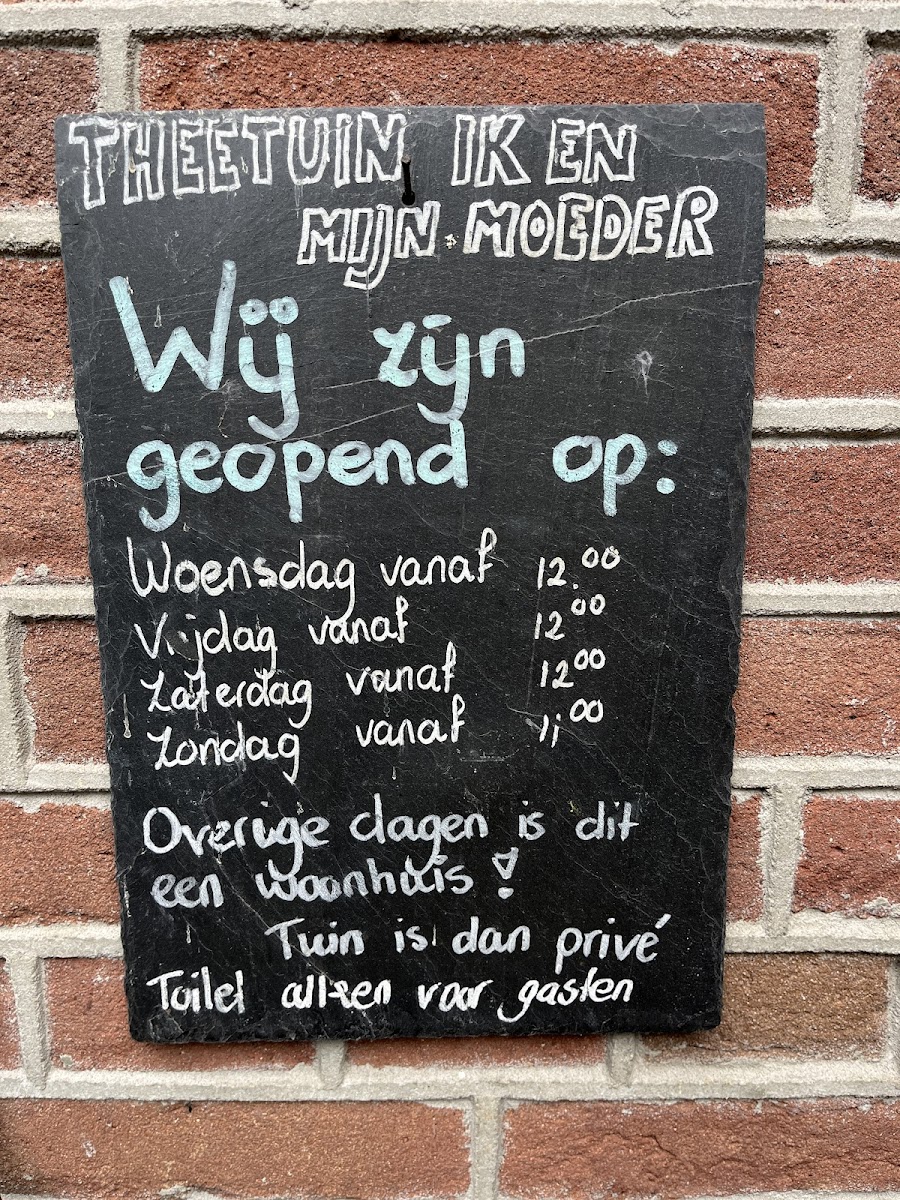 THEETUIN IK EN
MIJN MOEDER
Wij zijn
geopend op:
Woensdag vanaf 12.00
Vrijdag vanaf 12 00
Zaterdag vanaf 12 00
Zondag vanaf 11 00
Overige dagen is dit
een woonhuis!
Tuin is dan privé
Toilet alleen voor gasten